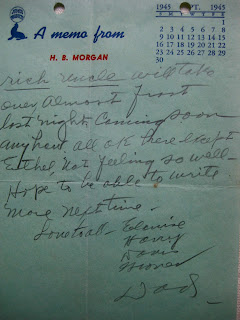 A memo from
H. B. MORGAN
1945 SEPT. 1945
S M T W T F S
1
2 3 4 5 6 7 8
9 10 11 12 13 14 15
16 17 18 19 20 21 22
23 24 25 26 27 28 29
30
rich uncle will take
over, Almost frost
last night, Coming soon
anyhow. all ok here except
Esthel, Not feeling so well -
Hope to be able to write
More Next time.
Love to all -
Harry
Dad -